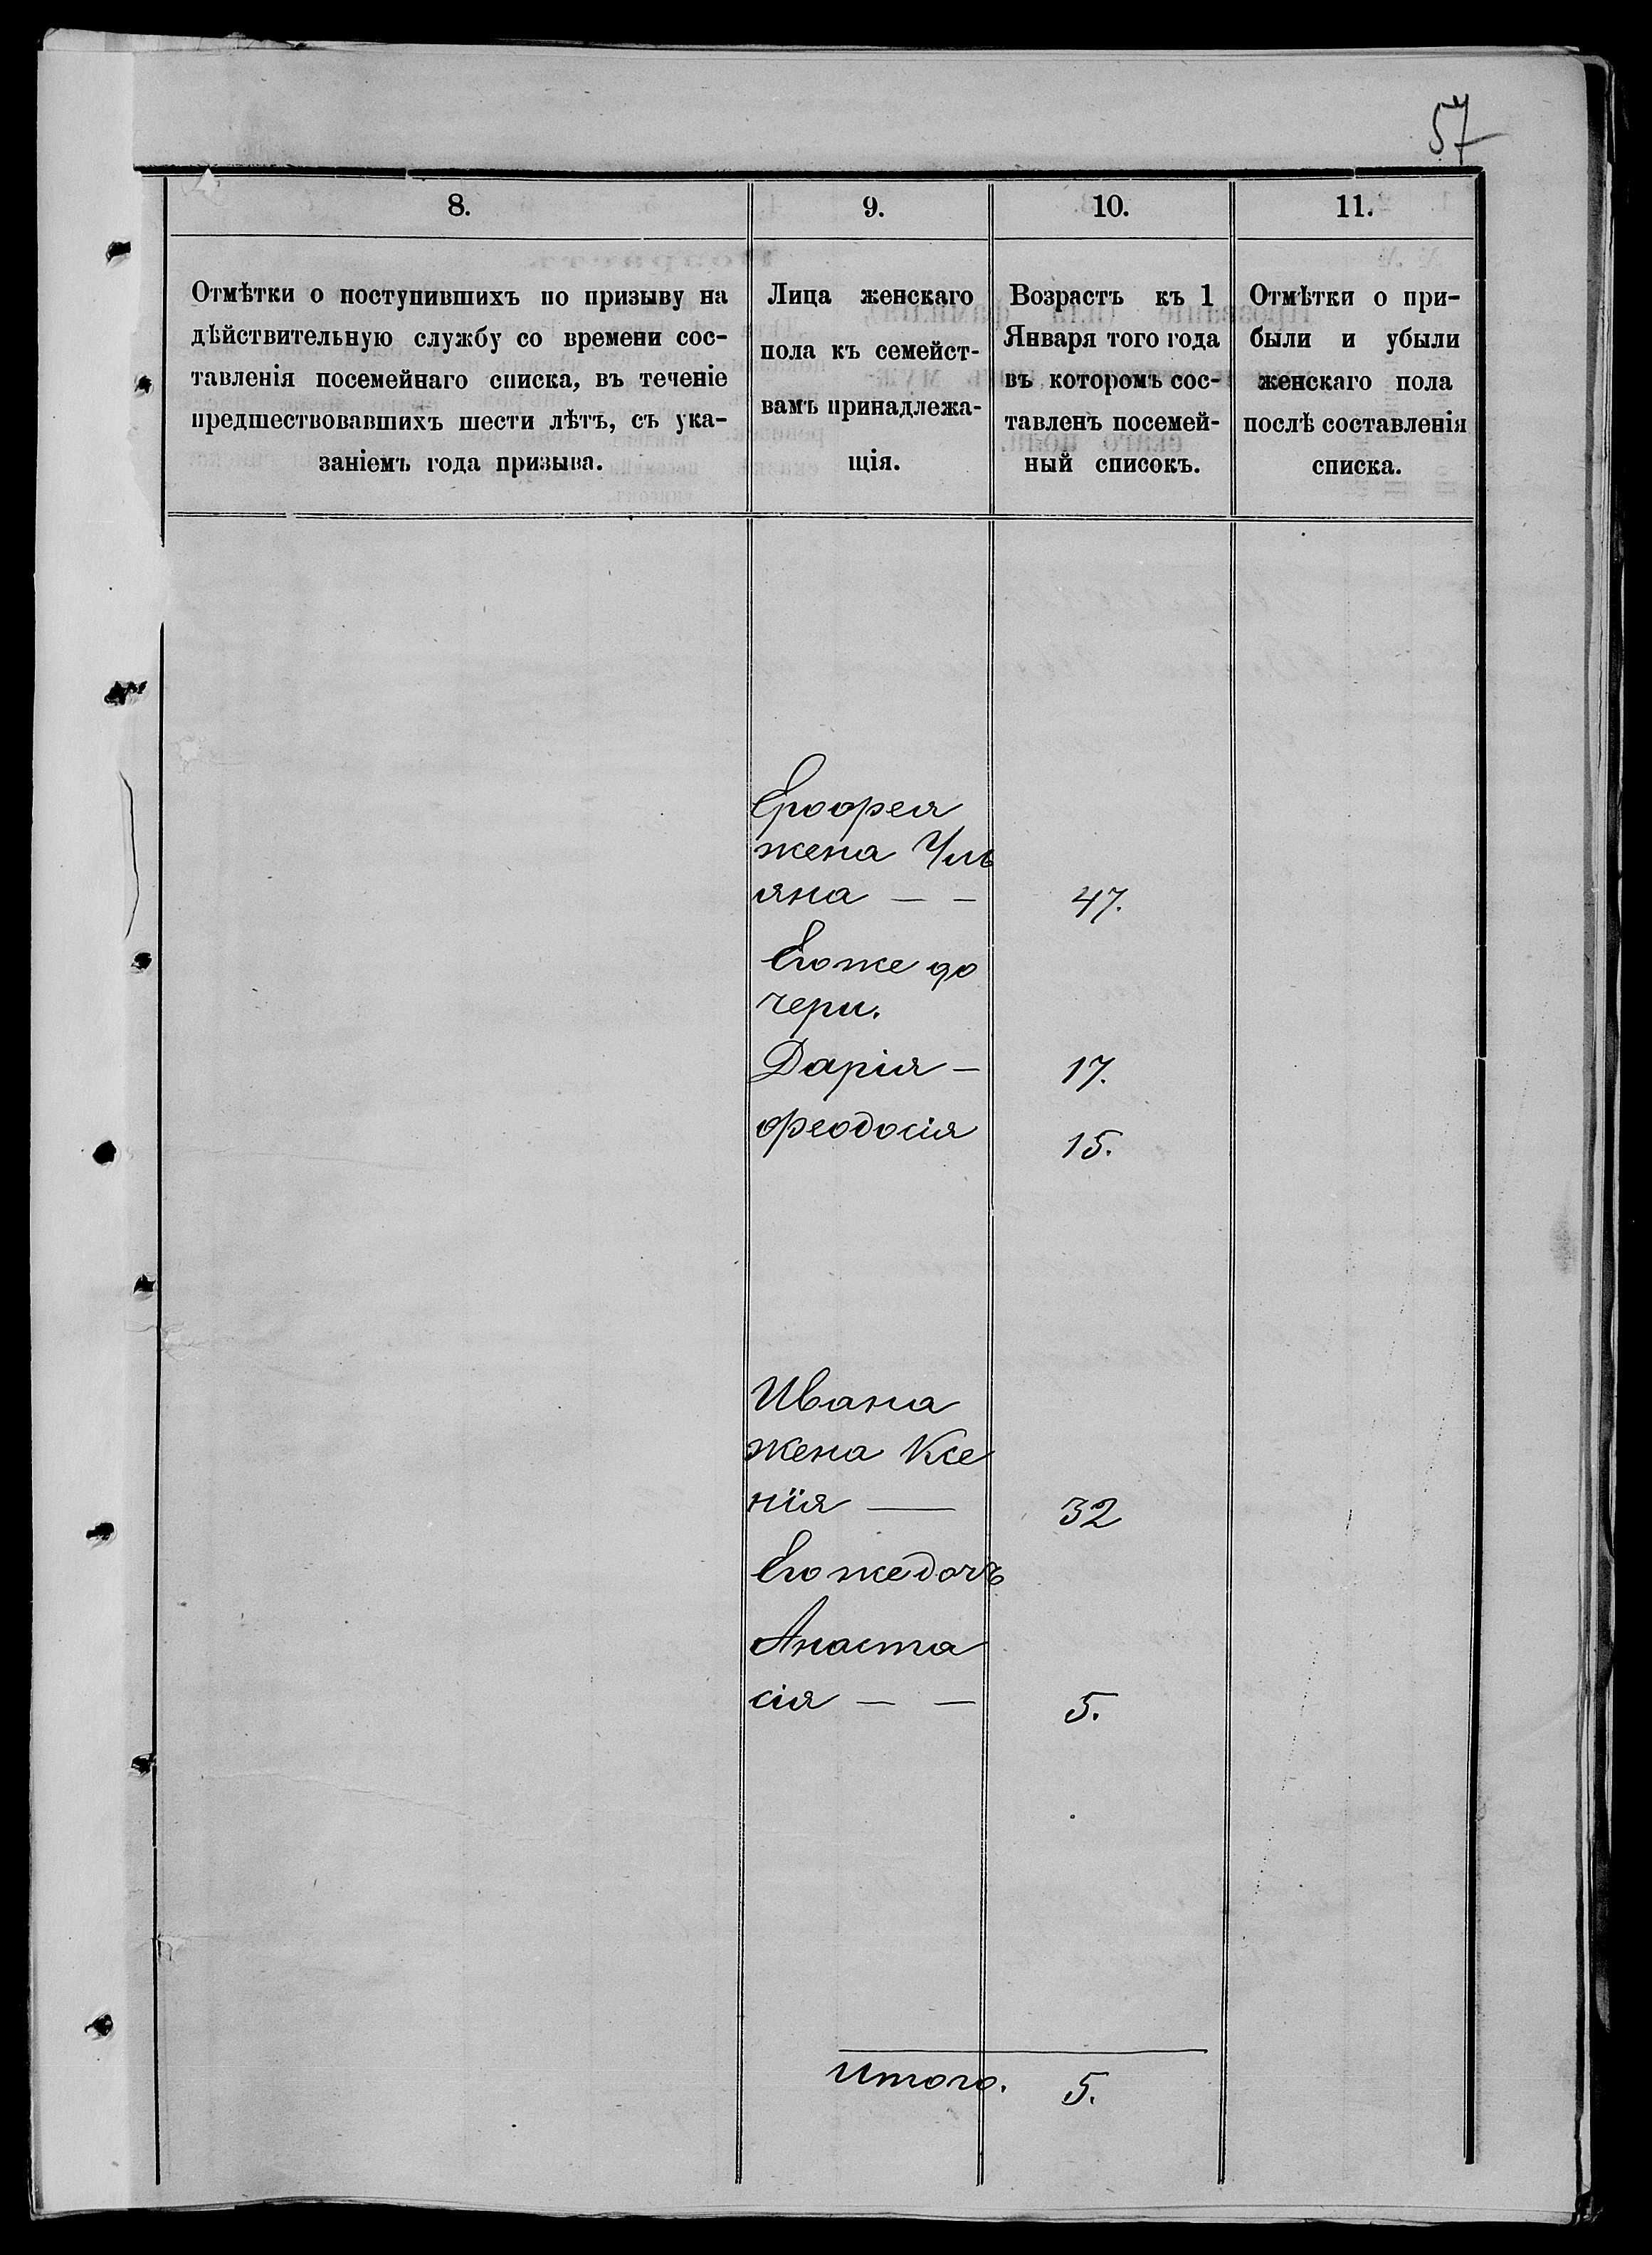 57
8.
9.
10.
11.
Отмѣтки о поступившихъ по призыву на
дѣйствительную службу со времени сос-
тавленія посемейнаго списка, въ теченіе
предшествовавшихъ шести лѣтъ, съ ука-
заніемъ года призыва.
Лица женскаго
пола къ семейст-
вамъ принадлежа-
щія.
Возрастъ къ 1
Января того года
въ которомъ сос-
тавленъ посемей-
ный списокъ.
Отмѣтки о при-
были и убыли
женскаго пола
послѣ составленія
списка.
Ерофея
жена Уль
яна — — 47.
Его же до
чери.
Дарія — 17.
Феодосія 15.
Ивана
жена Ксе
нія — 32
Его же дочь
Анаста
сія — — 5.
Итого. 5.